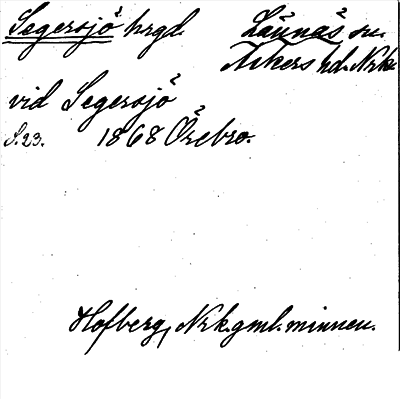 Segersjö² hrgd. Lännäs² sn.
Askers hd. Nrk.
vid Segersjö²
S. 23. 1868 Örebro.²
Hofberg, Nrk. gml. minnen.